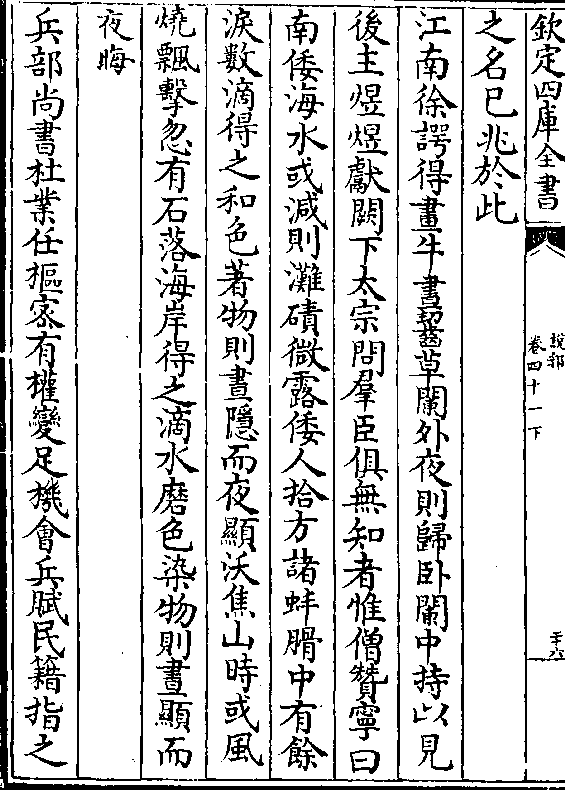 欽定四庫全書
説郛
卷四十一下
之名已兆於此
江南徐諤得畫牛晝齧草闌外夜則歸卧闌中持以見
後主煜煜獻闕下太宗問羣臣俱無知者惟僧贊寧曰
南倭海水或減則灘磧微露倭人拾方諸蚌腊中有餘
淚數滴得之和色著物則晝隱而夜顯沃焦山時或風
燒飄擊忽有石落海岸得之滴水磨色染物則晝顯而
夜晦
兵部尚書杜業任樞宻有權變足機會兵賦民籍指之